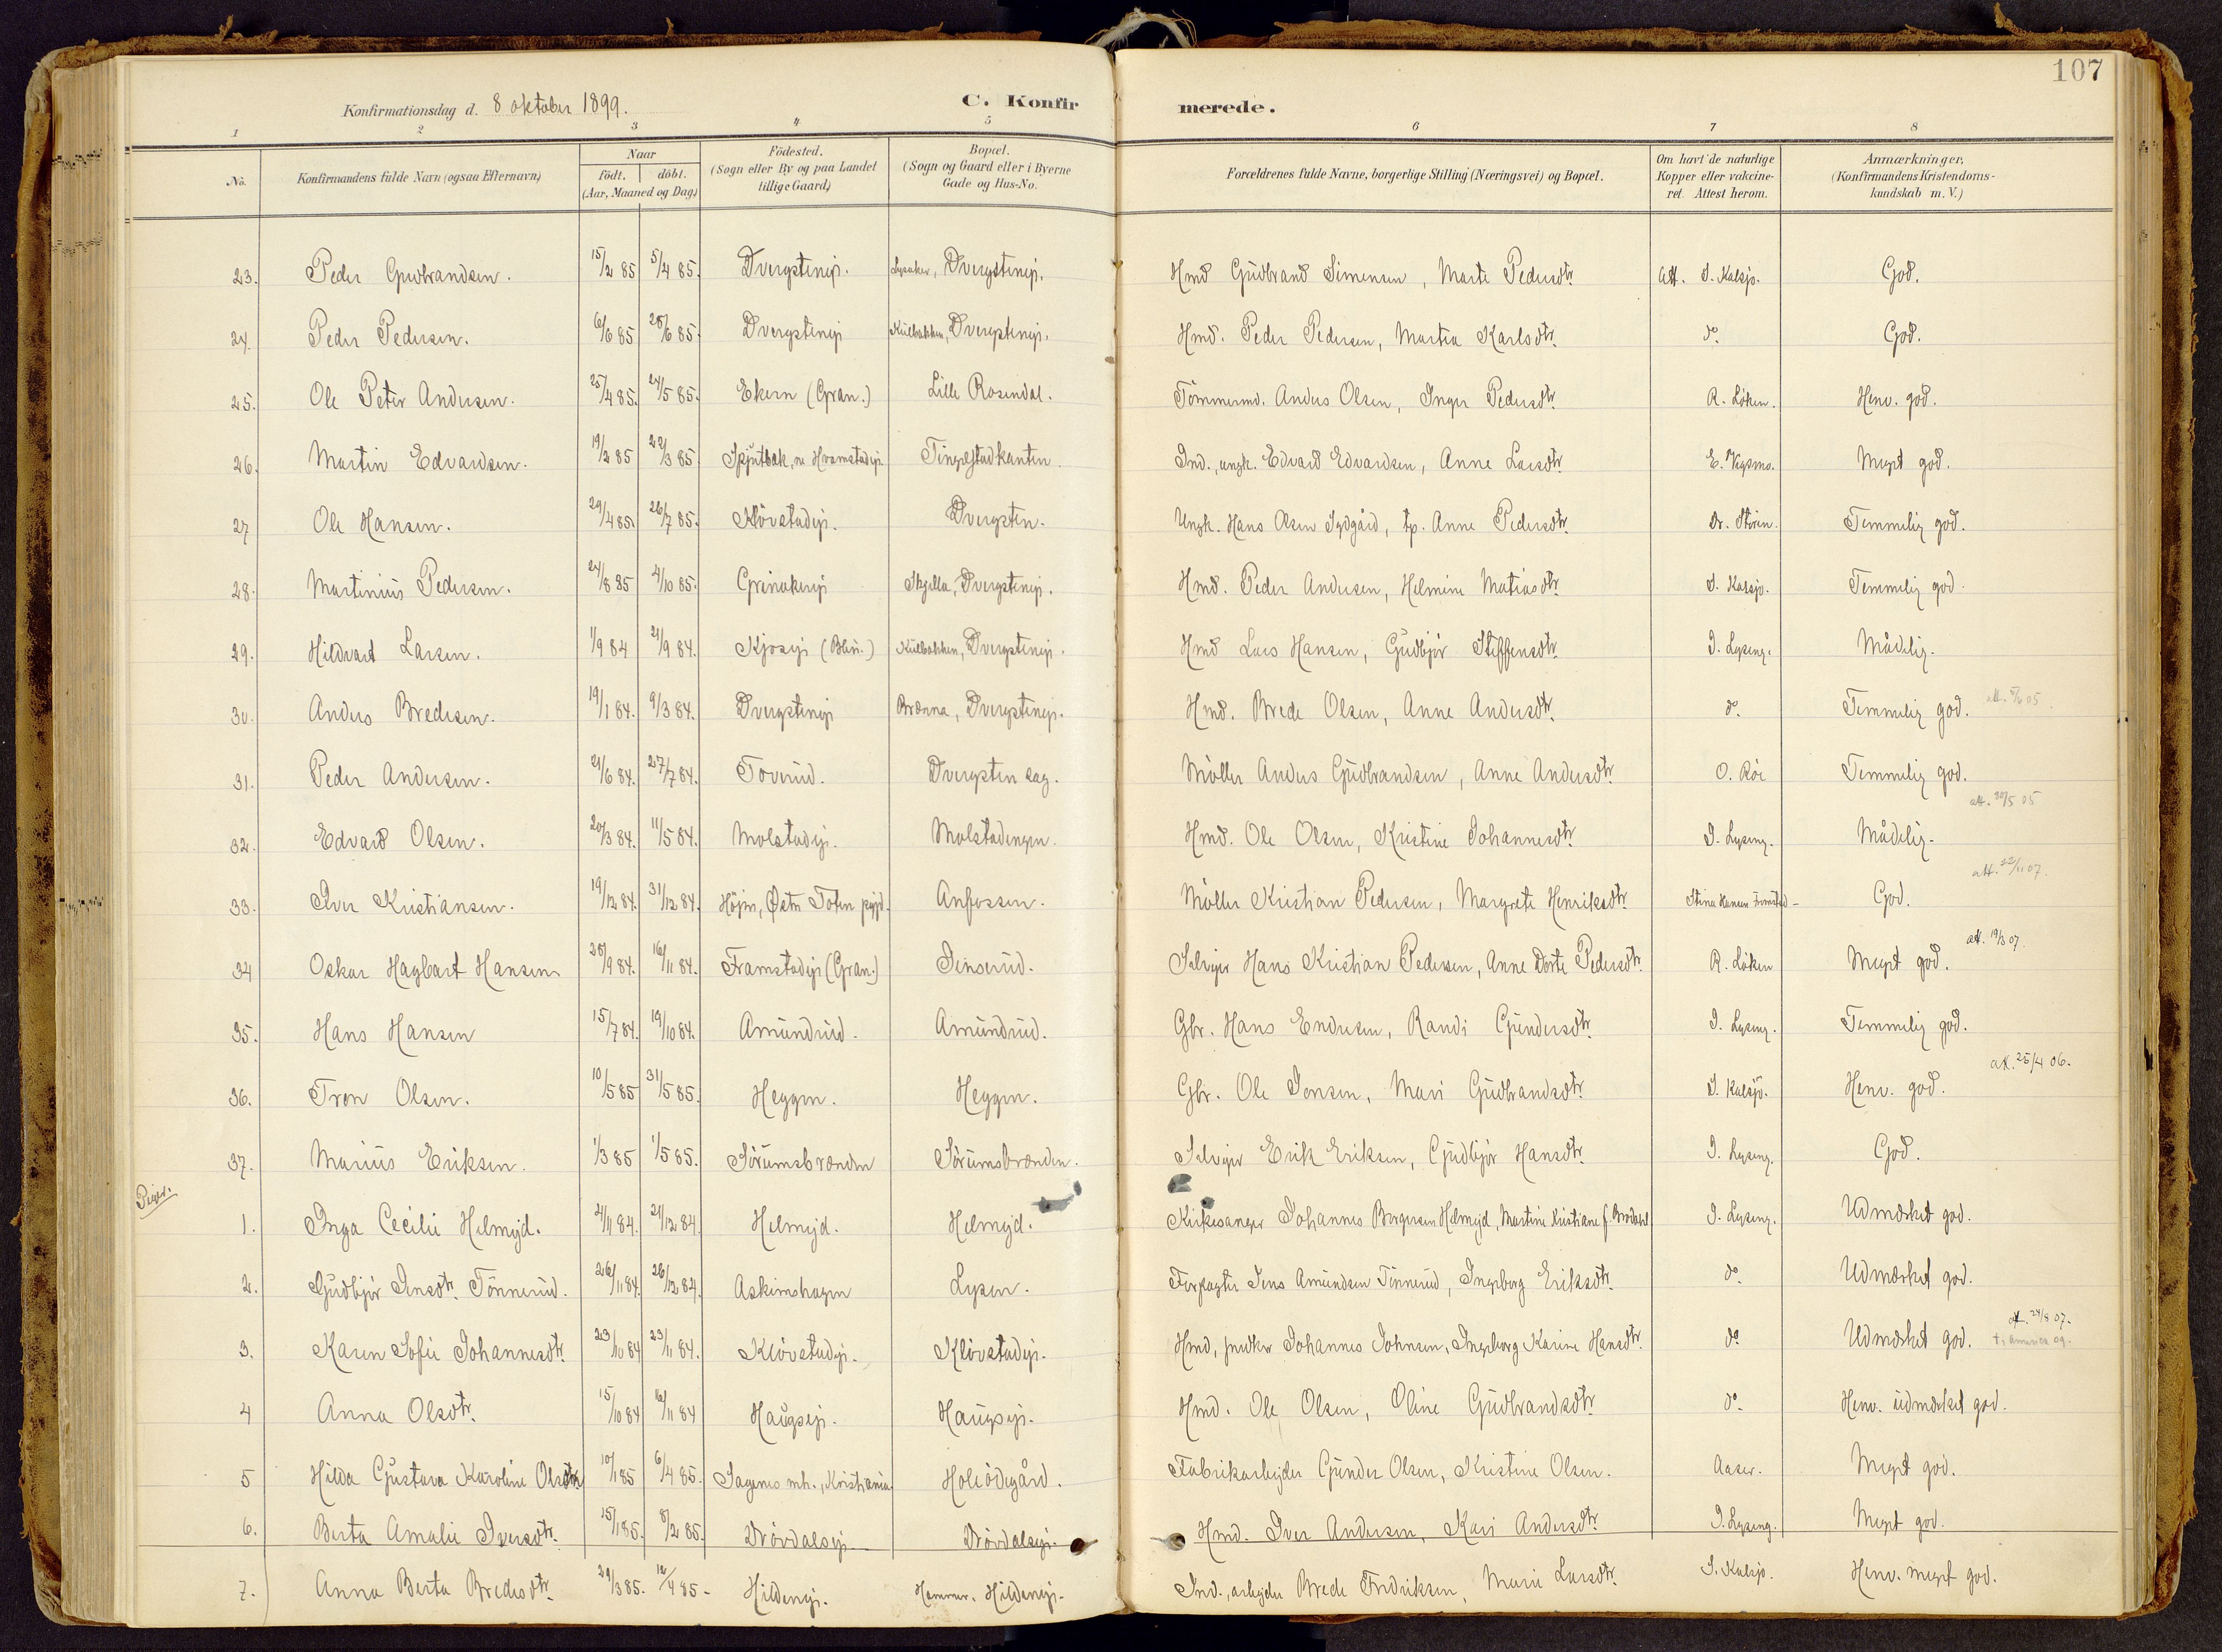 107
Konfirmationsdag d. 8 oktober 1899.
C. Konfirmerede.
1 2 3 4 5 6 7 8
No.
Konfirmandens fulde Navn (ogsaa Efternavn)
Naar
födt. döbt.
(Aar, Maaned og Dag.)
Födested.
(Sogn eller By og paa Landet
tillige Gaard.)
Bopæl.
(Sogn og Gaard eller i Byerne
Gade og Hus-No.
Forældrenes fulde Navne, borgerlige Stilling (Næringsvei) og Bopæl.
Om havt de naturlige
Kopper eller vakcine-
ret. Attest herom.
Anmærkninger,
(Konfirmandens Kristendoms-
kundskab m. V.)
23. Peder Gudbrandsen. 15/2 85 5/4 85. Dvergstenej. Dvergstenej. Hmd Gudbrand Simensen, Marte Pedersdtr. Att. I. Kalsjø. God.
24. Peder Pedersen. 6/6 85 28/6 85. Dvergstenej Kulbakken, Dvergstenej. Hmd. Peder Pedersen, Martea Karlsdtr. do. God.
25. Ole Peter Andersen. 25/4 85. 24/5 85. Ekern (Gran.) Lille Rosendal. Tömmermd. Anders Olsen, Inger Pedersdtr. R. Löken. Henv. god.
26. Martin Edvardsen. 19/2 85 22/3 85. Tingelstadkanten. Ind., ungk. Edvard Edvardsen, Anne Larsdtr. Meget god.
27 Ole Hansen. 29/4 85. 26/7 85. Klövstadej. Dvergsten. Ungk. Hans Olsen Sydgård, tp. Anne Pedersdtr. Dr. Stören. Temmelig god.
28. Martinius Pedersen. 24/8 85 4/10 85. Grinakerej Skjella, Dvergstenej. Hmd. Peder Andersen, Helmine Matiasdtr. I. Kalsjø. Temmelig god.
29. Hildvart Larsen. 1/9 84 21/9 84. Kjosej (Blen.) Kulbakken, Dvergstenej. Hmd Lars Hansen, Gudbjör Steffensdtr. I. Lyseng. Mådelig.
30. Anders Bredesen. 19/1 84. 9/3 84. Dvergstenej Brænna, Dvergstenej. Hmd. Brede Olsen, Anne Andersdtr. do. Temmelig god.
31. Peder Andersen. 21/6 84. 27/7 84. Toverud. Dvergsten sag. Möller Anders Gudbrandsen, Anne Andersdtr. O. Röi Temmelig god.
att. 20/5 05
32. Edvard Olsen. 20/3 84. 11/5 84. Molstadej. Molstadengen. Hmd. Ole Olsen, Kristine Johannesdtr. I. Lyseng. Mådelig.
att. 22/11 07.
33. Iver Kristiansen. 19/12 84. 31/12 84. Höjen, Østre Toten pgjd. Anfossen. Möller Kristian Pedersen, Margrete Henriksdtr. Stina Hansen God.
att. 19/3 07.
34 Oskar Hagbart Hansen 28/9 84. 16/11 84. Framstadej (Gran.) Jenserud. Selvejer Hans Kristian Pedersen, Anne Dorte Pedersdtr. R. Löken Meget god.
35. Hans Hansen 15/7 84. 19/10 84. Amundrud. Amundrud. Gbr. Hans Endresen, Randi Gundersdtr. I. Lyseng. Temmelig god.
att. 25/4 06.
36. Tron Olsen. 10/5 85 31/5 85. Heggen. Heggen. Gbr. Ole Jensen, Mari Gudbrandsdtr. I. Kalsjø. Henv. god.
37. Marius Eriksen. 1/3 85 1/5 85. Sörumsbrænden Sörumsbrænden. Selvejer Erik Eriksen, Gudbjör Hansdtr. I. Lyseng. God.
Piger.
1. Inga Cecilie Helmejd. 2/11 84. 21/12 84. Helmejd. Helmejd. Kirkesanger Johannes Borgersen Helmejd, Martine Kristiane f. I. Lyseng. Udmærket god.
2. Gudbjör Jensdtr. Tönnerud. 26/11 84. 26/12 84. Askimshagen Lysen. Forpagter Jens Amundsen Tönnerud, Ingeborg Eriksdtr. do. Udmærket god.
att. 24/8 07.
3. Karen Sofie Johannesdtr. 23/10 84 23/11 84. Klövstadej. Klövstadej. Hmd, snedker Johannes Johnsen, Ingeborg Karine Hansdtr. do. Udmærket god. t. Amerika 09.
4 Anna Olsdtr. 15/10 84 16/11 84 Haugsej. Haugsej. Hmd. Ole Olsen, Oline Gudbrandsdtr. do. Henv. udmærket god.
5 Hilda Gustava Karoline Olsdtr. 10/1 85 6/4 85. Sagenes mh., Kristiania Holeödegård. Fabrikarbejder Gunder Olsen, Kristine Olsen. Aaser. Meget god.
6. Berta Amalie Iversdtr. 15/1 85. 8/2 85. Drövdalsej. Drövdalsej. Hmd. Iver Andersen, Kari Andersdtr. I. Lyseng. Meget god.
7. Anna Berta Bredesdtr. 29/3 85. 12/4 85. Hildenej. Hammer. Hildenej. Ind., arbejder Brede Fredriksen, Marie Larsdtr. I. Kalsjø. Henv. meget god.